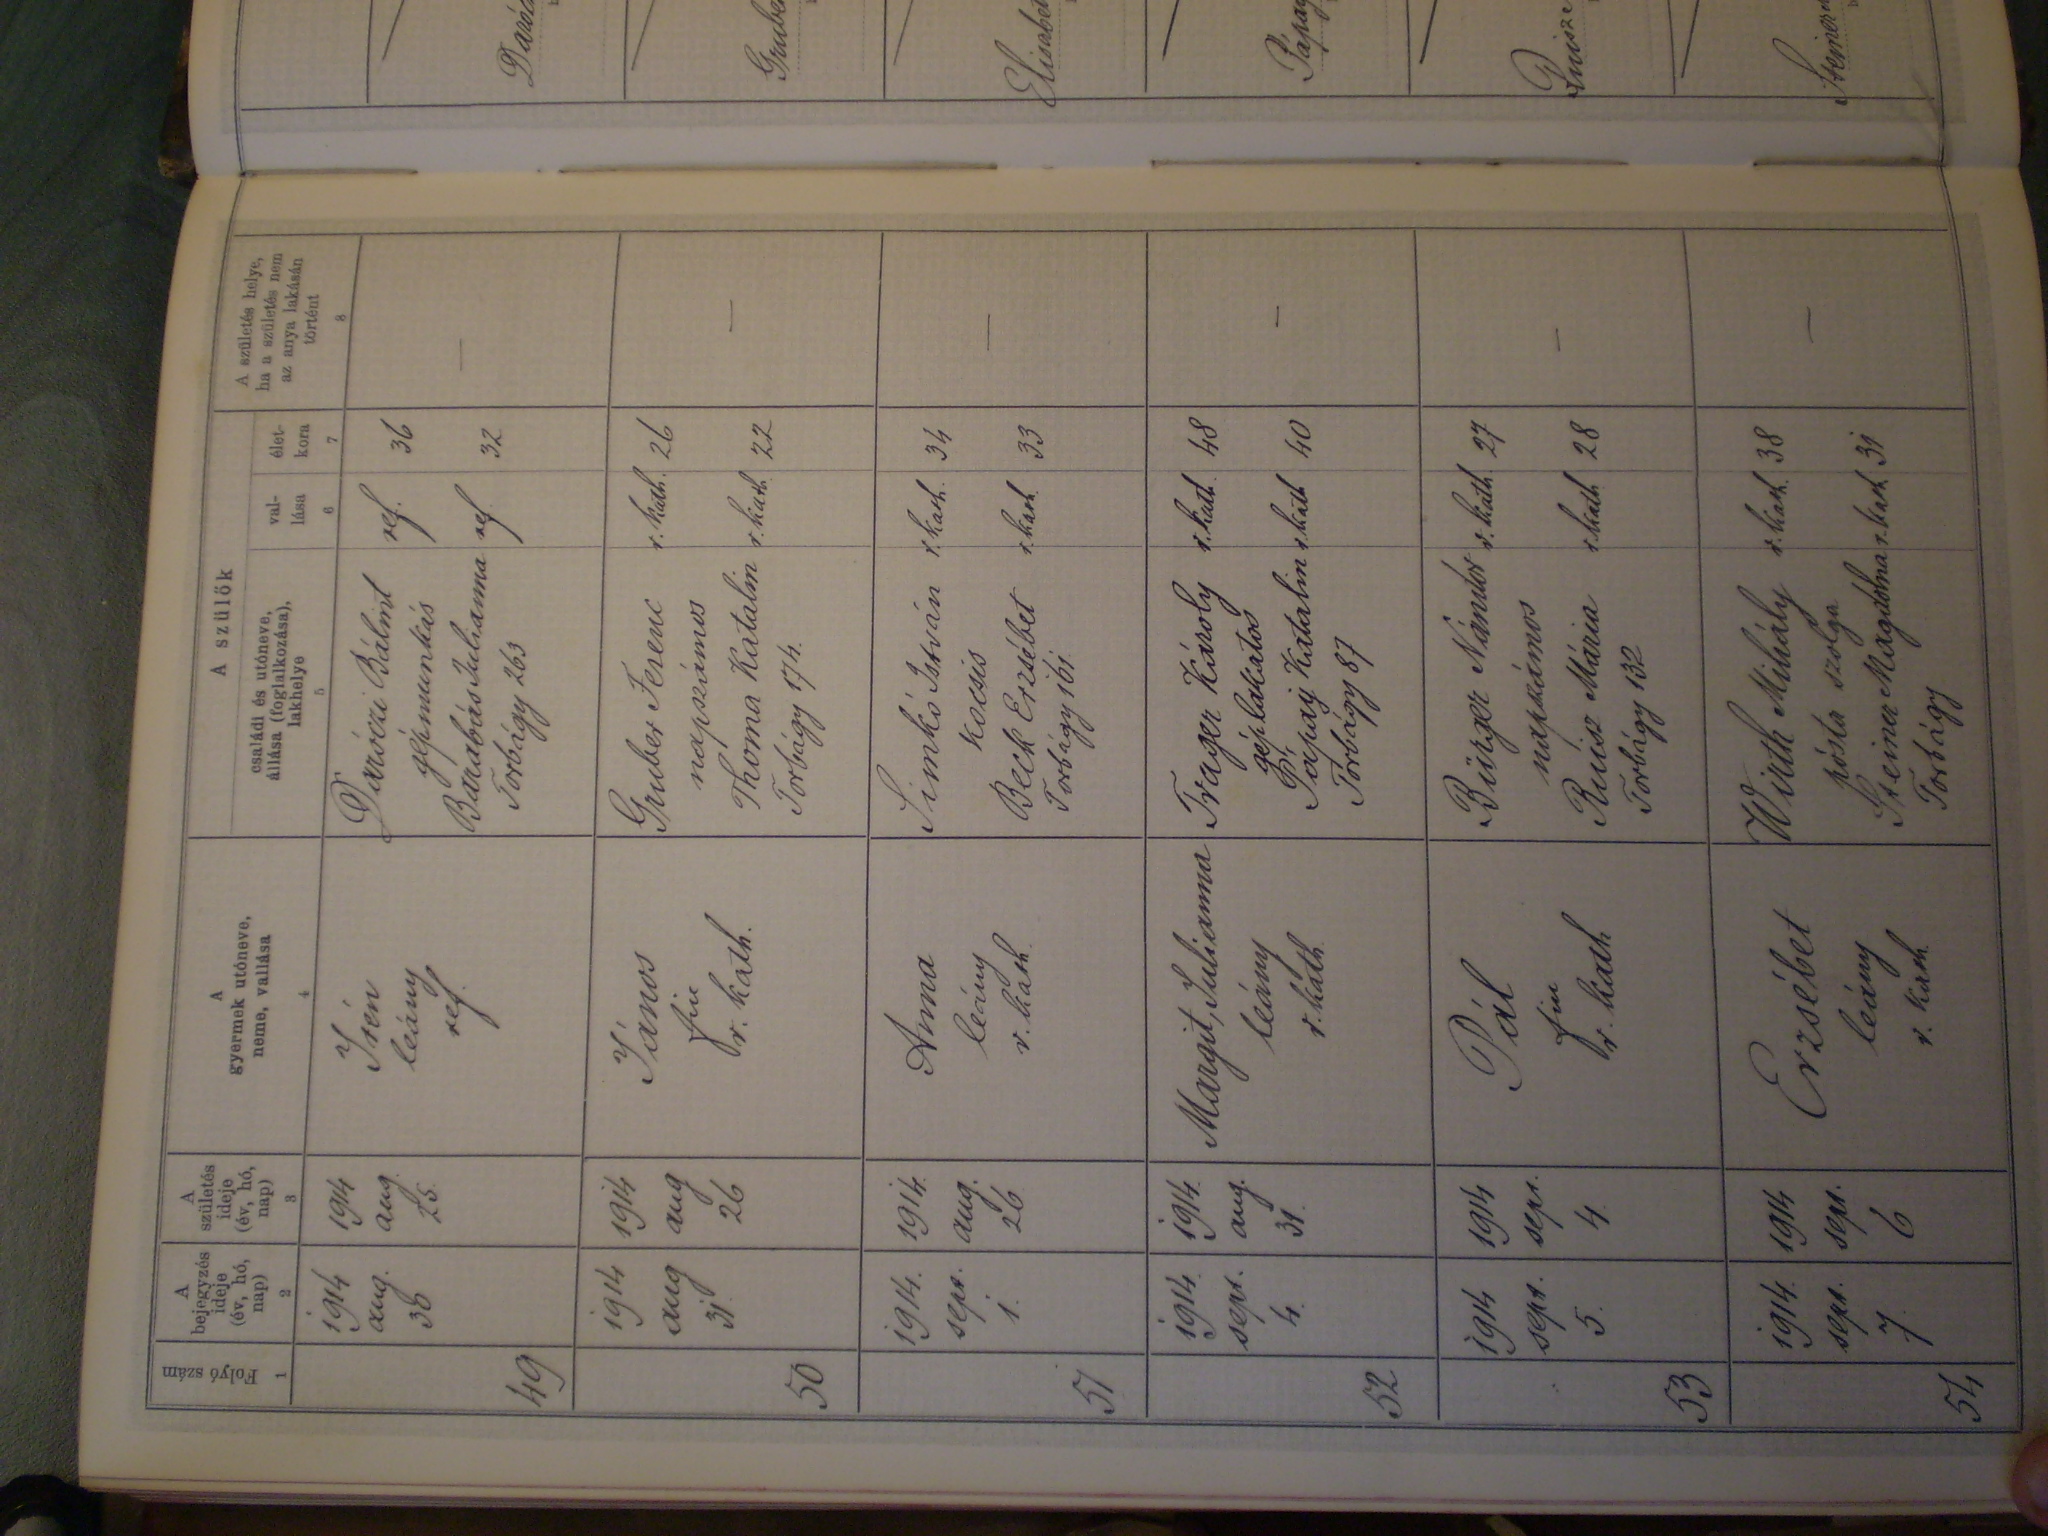 Folyó szám
1
A
bejegyzés
ideje
(év, hó,
nap)
2
A
születés
ideje
(év, hó,
nap)
3
A
gyermek utóneve,
neme, vallása
4
A szülők
családi és utóneve,
állása (foglalkozása),
lakhelye
5
val-
lása
6
élet-
kora
7
A születés helye,
ha a születés nem
az anya lakásán
történt
8
49
1914
aug.
30
1914
aug.
25.
Irén
leány
ref.
Daróczi Bálint ref. 36
gépmunkás
Barabás Julianna ref. 32
Torbágy 263
—
50
1914
aug
31.
1914
aug
26
János
fiu
r. kath.
Gruber Ferenc r. kath. 26
napszámos
Thoma Katalin r. kath. 22
Torbágy 174.
—
51
1914.
sept.
1.
1914.
aug.
26
Anna
leány
r. kath.
Simkó István r. kath. 34
kocsis
Beck Erzsébet r. kath. 33
Torbágy 161.
—
52
1914.
sept.
4.
1914.
aug.
31.
Margit, Julianna
leány
r. kath.
Trager Károly r. kath. 48
géplakatos
Pápay Katalin r. kath 40
Torbágy 87
—
53
1914
sept.
5.
1914
sept.
4.
Pál
fiu
r. kath
Bürger Nándor r. kath. 27
napszámos
Ruisz Mária r. kath. 28
Torbágy 132
—
54
1914.
sept.
7.
1914
sept.
6
Erzsébet
leány
r. kath.
Wirth Mihály r. kath. 38
pósta szolga
Steiner Magdolna r. kath. 31
Torbágy
—
Daró
Grube
Elisabet
Pápay
Ruisz
Steiner